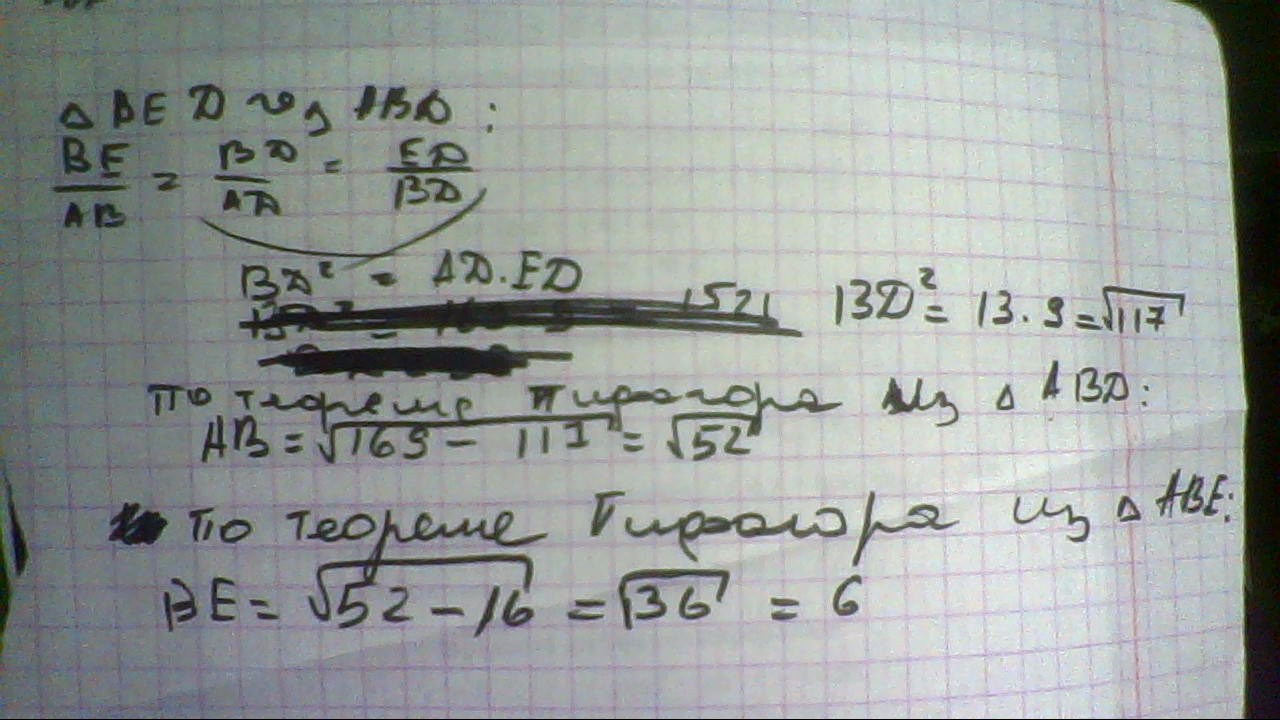 △ BED ∾ △ ABD :
BE/AB = BD/AD = ED/BD
BD² = AD·ED
1521 BD² = 13·9 = √117
по теореме Пифагора из △ ABD:
AB = √169 - 117 = √52
по теореме Пифагора из △ ABE:
BE = √52 - 16 = √36 = 6